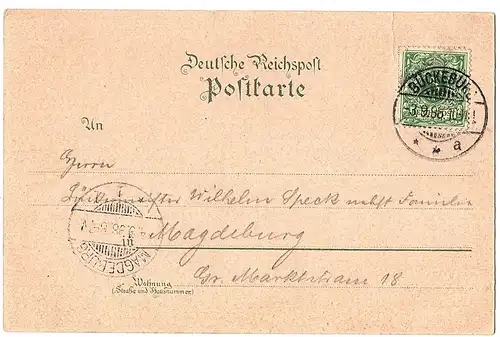 Deutsche Reichspost
Postkarte
BÜCKEBURG
3.9.98
* * a
An
Herrn
Wilhelm Speck nebst Familie
Magdeburg
MAGDEBURG
Gr. Marktstraße 18
Wohnung
(Straße und Hausnummer)